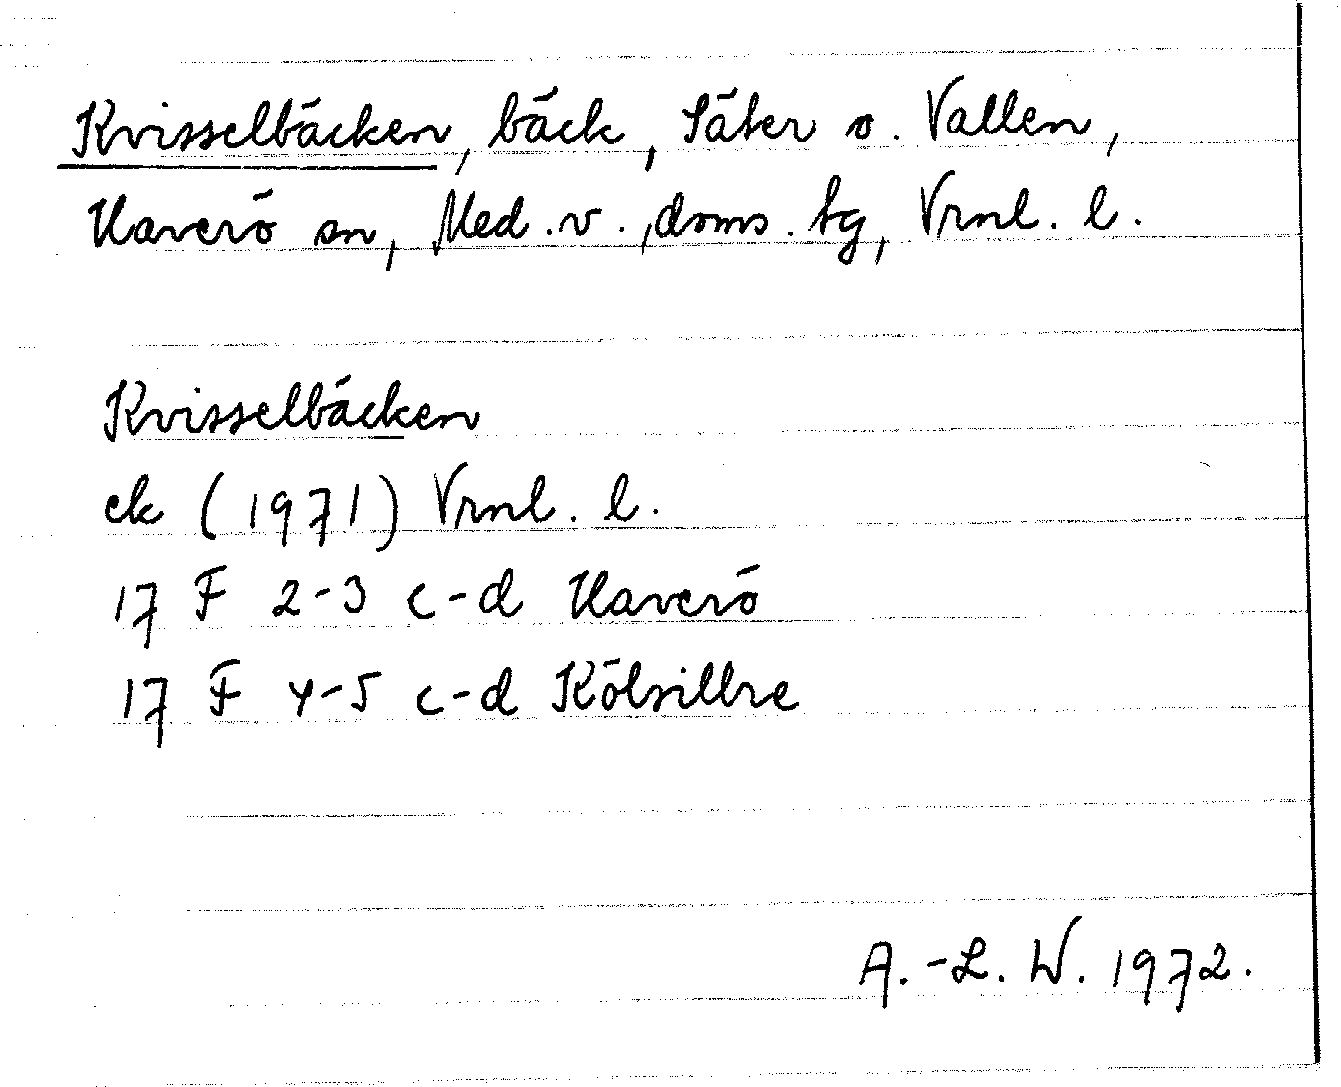 Kvisselbäcken, bäck, Säter o. Vallen,
Haverö sn, Med.v., doms. tg, Vrnl. l.
Kvisselbäcken
ek (1971) Vrnl. l.
17 F 2-3 c-d Haverö
17 F 4-5 c-d Kölsillre
A.-L. W. 1972.